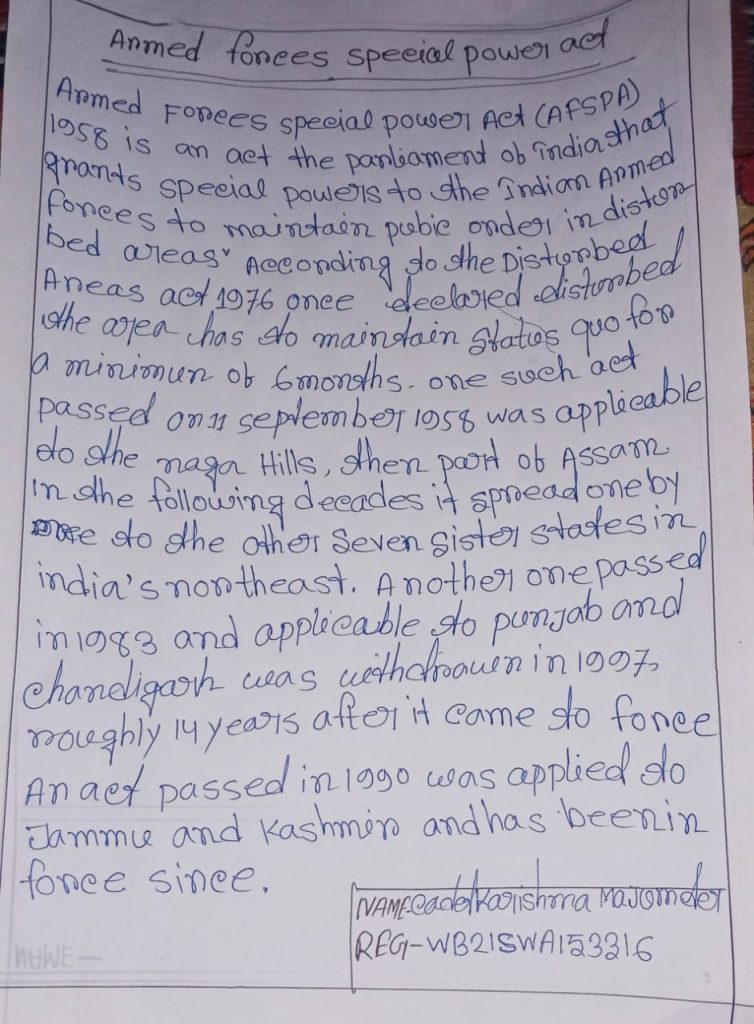 Armed forces special power act
Armed Forces special power Act (AFSPA)
1958 is an act the parliament of india that
grants special powers to the Indian Armed
forces to maintain pubic order in distor
bed areas" According to the Disturbed
Areas act 1976 once declared distorbed
the area has to maintain status quo for
a minimun of 6 months. one such act
passed on 11 september 1958 was applicable
to the naga Hills, then part of Assam.
In the following decades it spread one by
one to the other Seven Sister states in
india's northeast. Another one passed
in 1983 and applicable to punjab and
chandigarh was withdrawen in 1997,
roughly 14 years after it came to force
An act passed in 1990 was applied to
Jammu and Kashmir and has been in
force since.
NAME-Cadet Karishma Majumder
REG-WB21SWA153316
NAME-